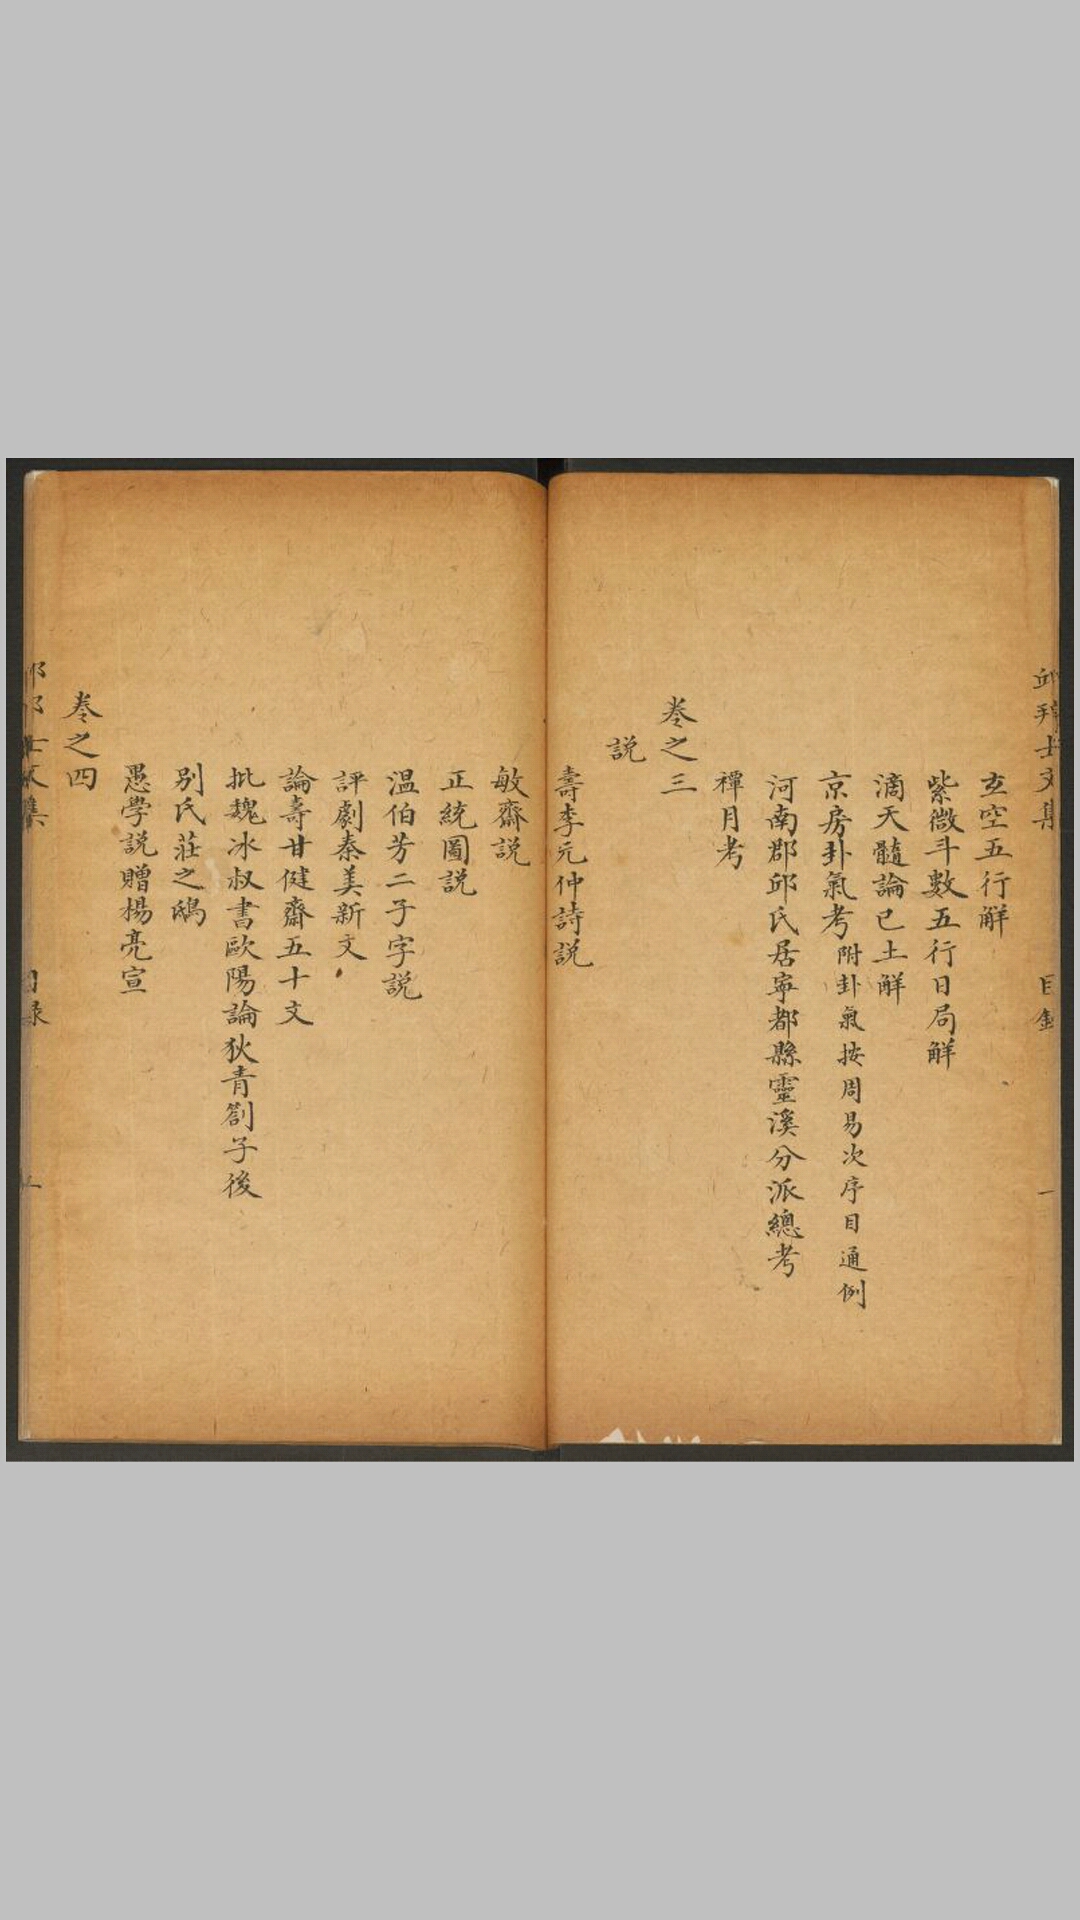 邱邦士文集
目錄
一
玄空五行解
紫微斗數五行日局解
滴天髓論已土解
京房卦氣考附卦氣按周易次序目通例
河南郡邱氏居寧都縣靈溪分派總考
禫月考
卷之三
説
壽李元仲詩説
敏齋説
正統圖説
温伯芳二子字説
評劇秦美新文
論壽甘健齋五十文
批魏冰叔書歐陽論狄青劄子後
别氏莊之鴟
愚學説贈楊亮宣
卷之四
目錄